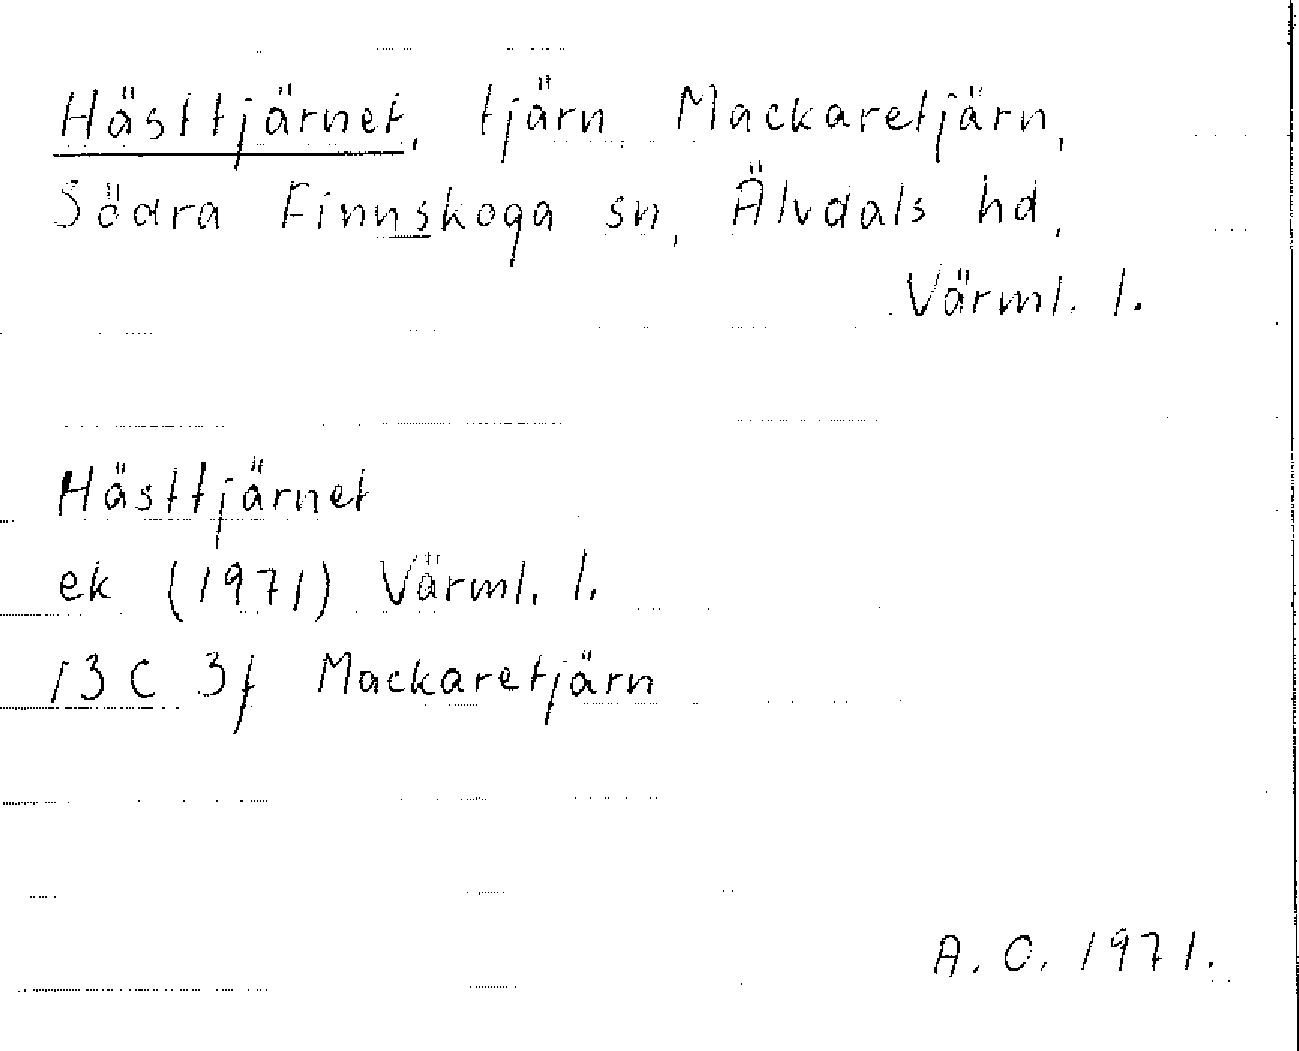 Hästtjärnet, tjärn, Mackaretjärn,
Södra Finnskoga sn, Älvdals hd,
Värml. l.
Hästtjärnet
ek (1971) Värml. l.
13 C 3f Mackaretjärn
A. O. 1971.